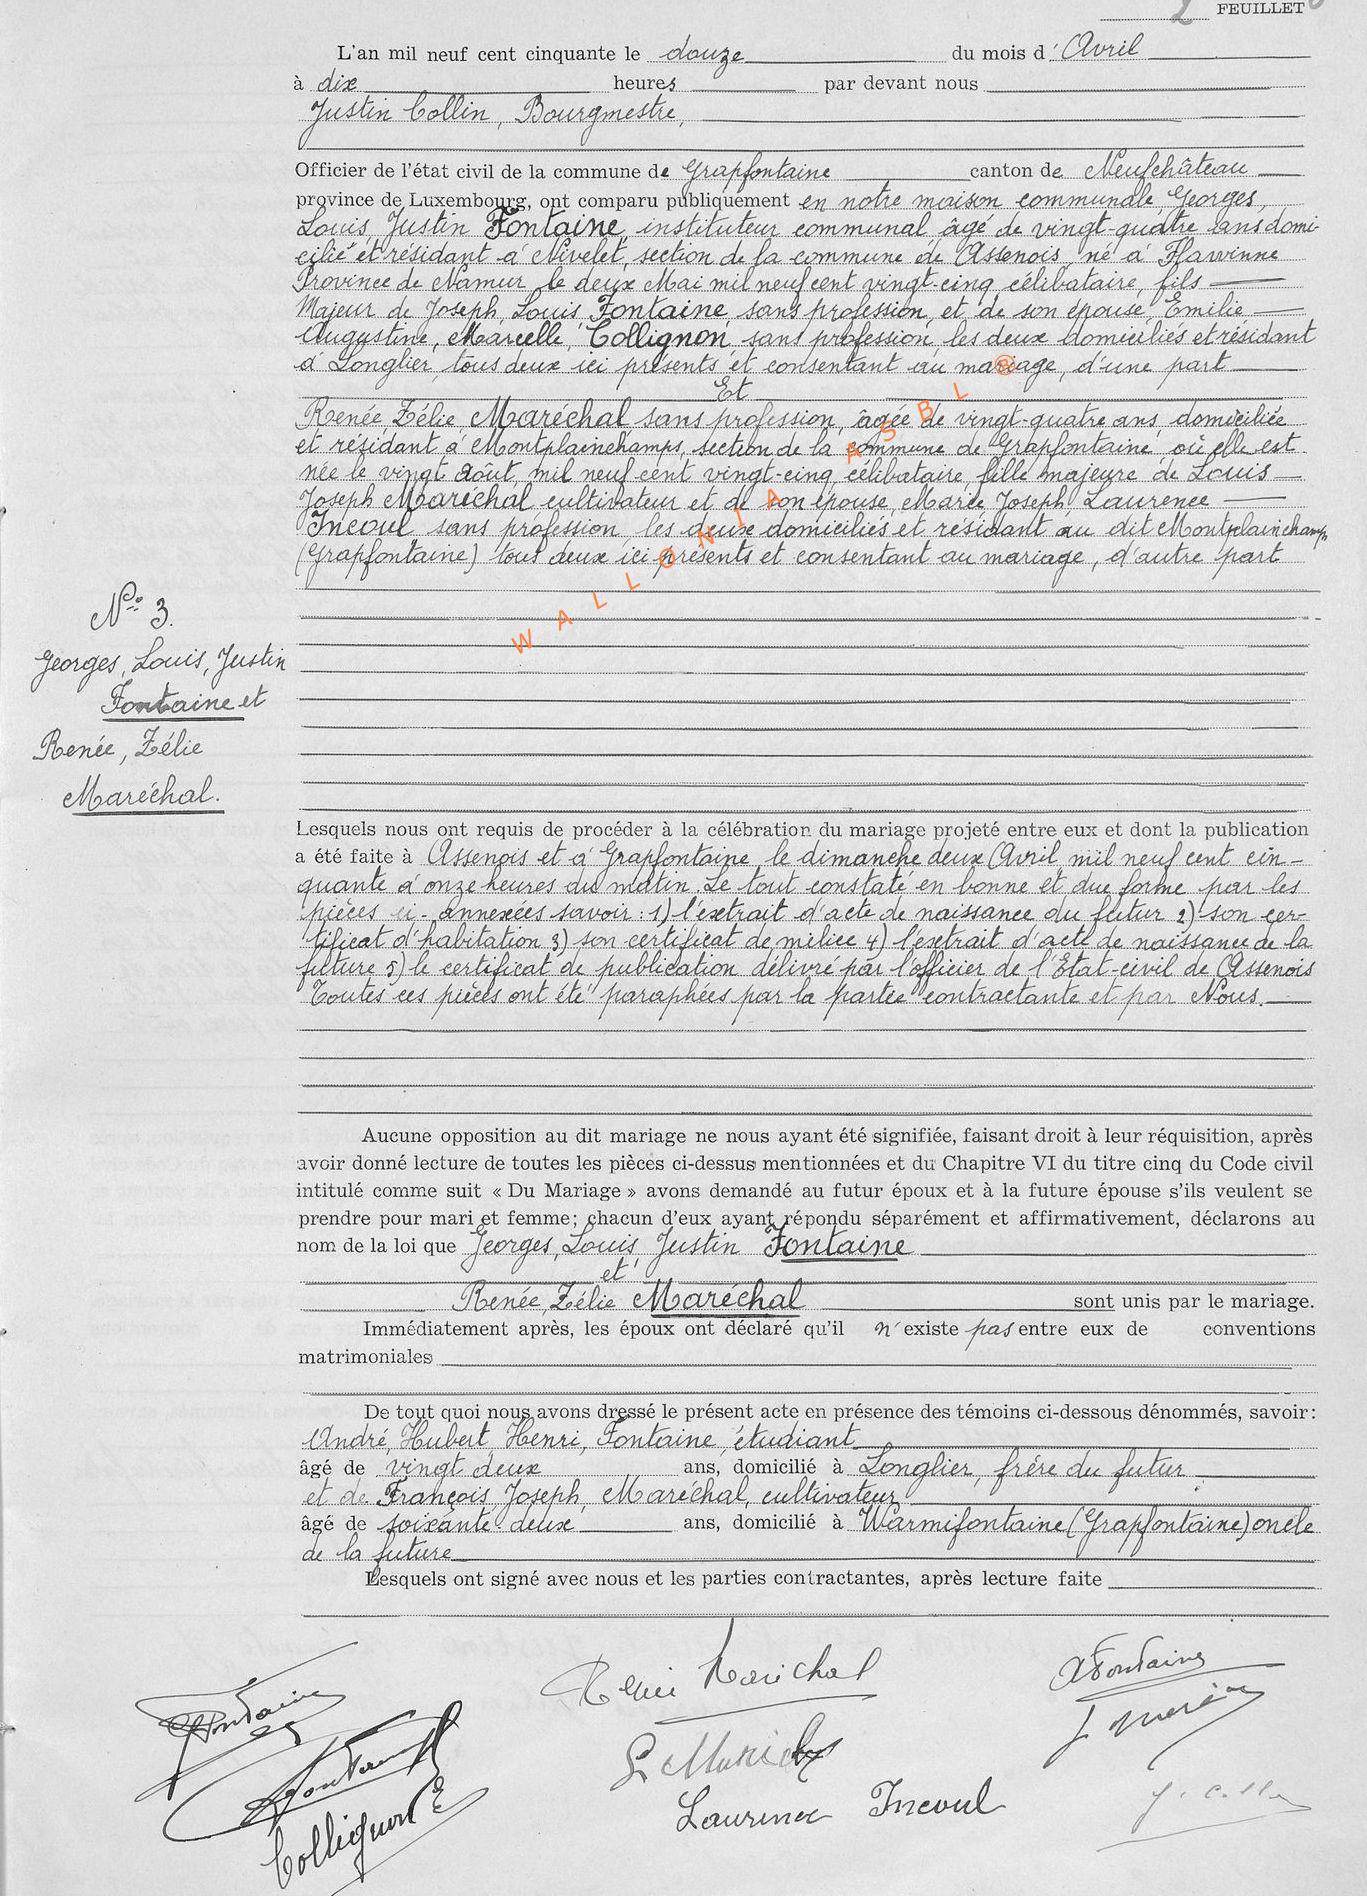 2 FEUILLET
L'an mil neuf cent cinquante le douze du mois d' Avril
à dix heures par devant nous
Justin Collin, Bourgmestre,
Officier de l'état civil de la commune de Grapfontaine canton de Neufchâteau
province de Luxembourg, ont comparu publiquement en notre maison communale, Georges,
Louis, Justin Fontaine, instituteur communal âgé de vingt-quatre ans domi-
cilié et résidant à Nivelet, section de la commune de Assenois, né à Flawinne
Province de Namur le deux Mai mil neuf cent vingt-cinq célibataire, fils
Majeur de Joseph, Louis Fontaine, sans profession, et de son épouse, Emilie
Augustine, Marcelle, Collignon, sans profession, les deux domiciliés et résidant
à Longlier, tous deux ici présents et consentant au mariage, d'une part
Et
Renée, Zélie Maréchal sans profession, âgée de vingt-quatre ans, domiciliée
et résidant à Montplainchamps, section de la commune de Grapfontaine où elle est
née le vingt août, mil neuf cent vingt-cinq célibataire, fille majeure de Louis
Joseph Maréchal cultivateur et de son épouse, Marie, Joseph, Laurence
Incoul sans profession, les deux domiciliés et résidant au dit Montplainchamps
(Grapfontaine) tous deux ici présents et consentant au mariage, d'autre part
WALLONIA ASBL ®
N° 3.
Georges, Louis, Justin
Fontaine et
Renée, Zélie
Maréchal.
Lesquels nous ont requis de procéder à la célébration du mariage projeté entre eux et dont la publication
a été faite à Assenois et à Grapfontaine, le dimanche deux Avril mil neuf cent cin-
quante à onze heures du matin. Le tout constaté en bonne et due forme par les
pièces ci-annexées savoir: 1) l'extrait d'acte de naissance du futur 2) son cer-
tificat d'habitation 3) son certificat de milice 4) l'extrait d'acte de naissance de la
future 5) le certificat de publication délivré par l'officier de l'Etat-civil de Assenois
Toutes ces pièces ont été paraphées par la partie contractante et par Nous.
Aucune opposition au dit mariage ne nous ayant été signifiée, faisant droit à leur réquisition, après
avoir donné lecture de toutes les pièces ci-dessus mentionnées et du Chapitre VI du titre cinq du Code civil
intitulé comme suit « Du Mariage » avons demandé au futur époux et à la future épouse s'ils veulent se
prendre pour mari et femme; chacun d'eux ayant répondu séparément et affirmativement, déclarons au
nom de la loi que Georges, Louis, Justin Fontaine
et
Renée, Zélie Maréchal sont unis par le mariage.
Immédiatement après, les époux ont déclaré qu'il n'existe pas entre eux de conventions
matrimoniales
De tout quoi nous avons dressé le présent acte en présence des témoins ci-dessous dénommés, savoir:
André, Hubert, Henri, Fontaine, étudiant
âgé de vingt deux ans, domicilié à Longlier, frère du futur
et de François, Joseph, Maréchal, cultivateur
âgé de soixante-deux ans, domicilié à Warmifontaine (Grapfontaine) oncle
de la future
Lesquels ont signé avec nous et les parties contractantes, après lecture faite
Fontaine
Renée Maréchal
A Fontaine
Fontaine
Collignon E
L Maréchal
Laurence Incoul
J. Collin